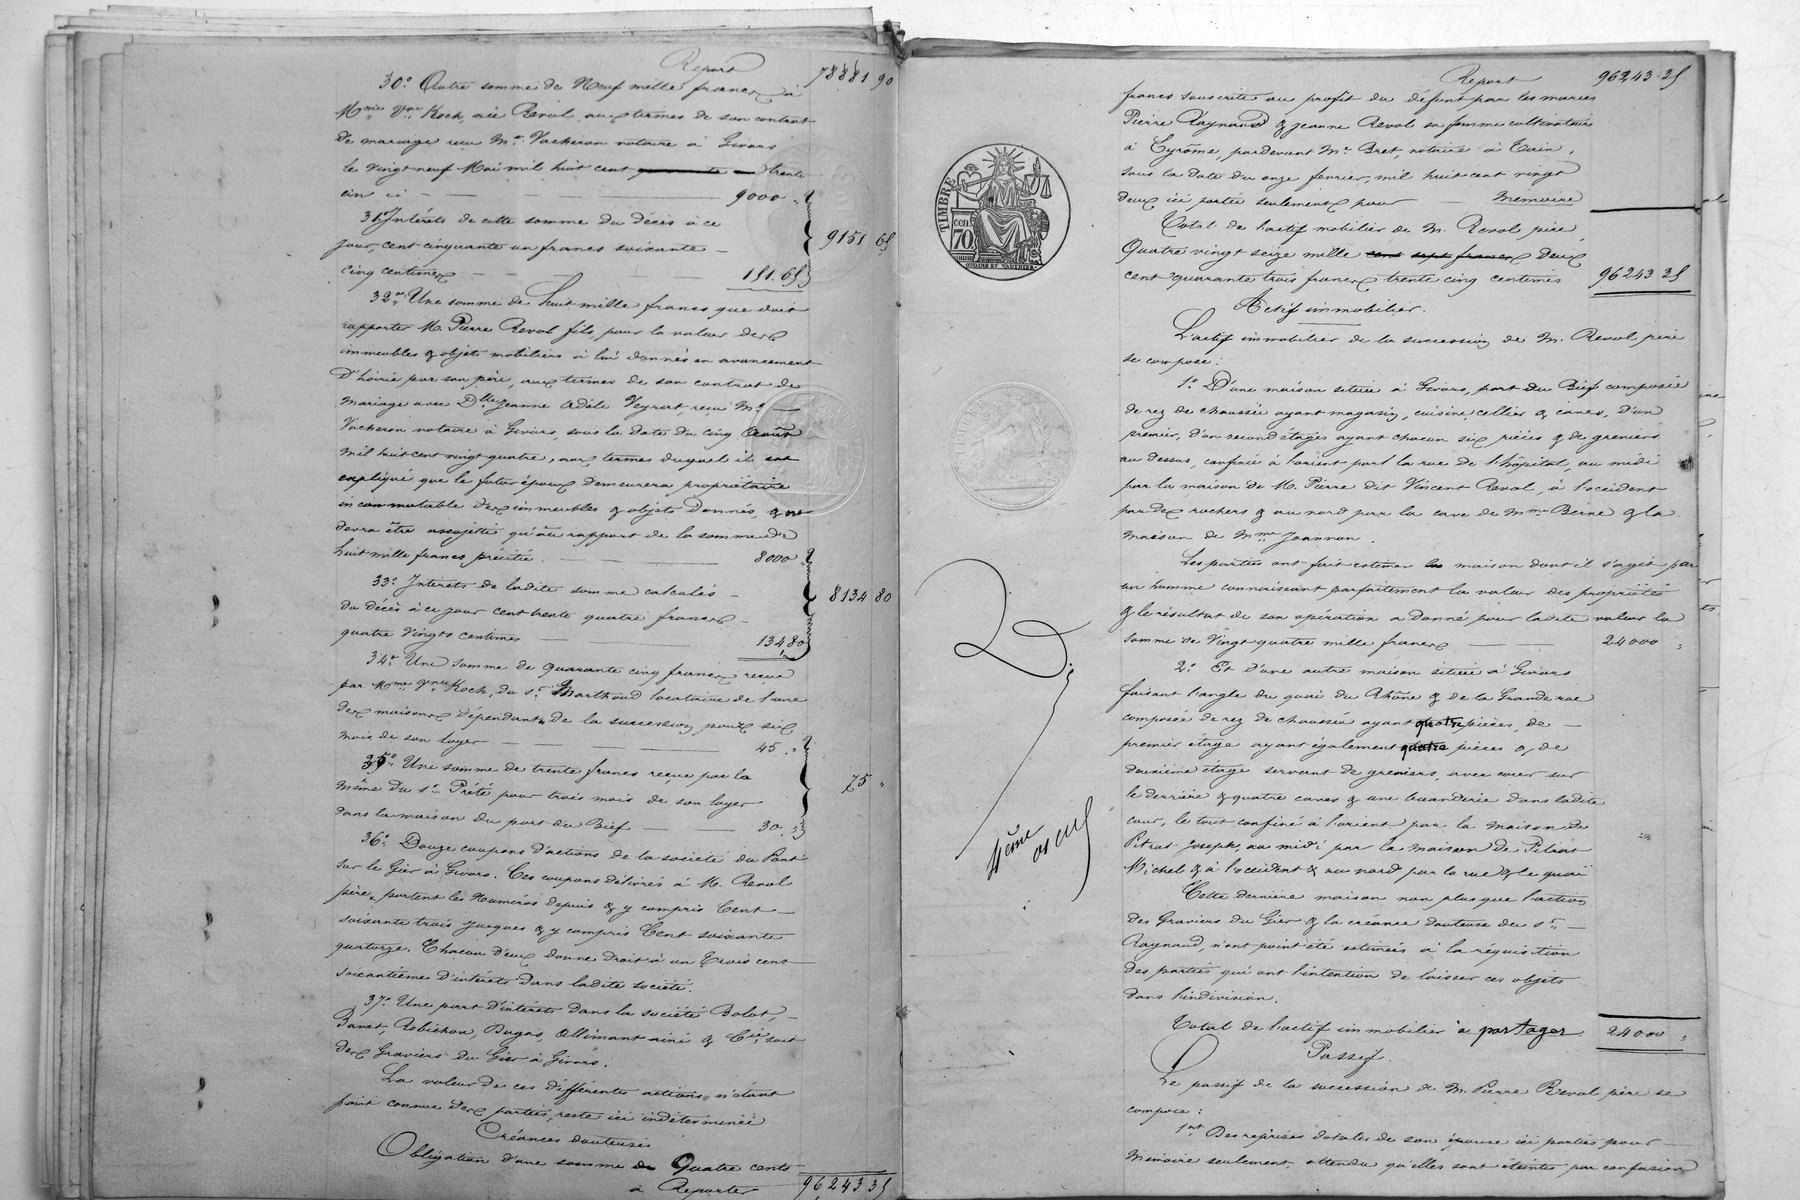 Report 78881 90
30° Autre somme de Neuf mille francs à
Mme Vve Koch, née Revol, aux termes de son contrat
de mariage reçu Me Vacheron notaire à Givors
le vingt neuf Mai mil huit cent trente
cinq ci — 9000 "
31° Intérêts de cette somme du décès à ce
jour, cent cinquante un francs soixante — 9151 65
cinq centimes — 151.65
32° Une somme de huit mille francs que doit
rapporter M. Pierre Revol fils, pour la valeur des
immeubles & objets mobiliers à lui donnés en avancement
D'hoirie par son père, aux termes de son contrat de
mariage avec Dlle Jeanne Adèle Veyrat reçu Me —
Vacheron notaire à Givors, sous la date du cinq Août
mil huit cent vingt quatre, aux termes duquel il est
expliqué que le futur époux demeurera propriétaire
incommutable des immeubles & objets donnés, & ne
devra être assujetti qu'au rapport de la somme de
huit mille francs précitée. — 8000 "
33° Intérêts de ladite somme calculés —
du décès à ce jour cent trente quatre francs — 8134 80
quatre vingts centimes — 134 80
34° Une somme de quarante cinq francs reçue
par Mme Vve Koch, du sr Marthoud locataire de l'une
des maisons dépendant de la succession pour six
mois de son loyer — 45 "
35° Une somme de trente francs reçue par la
même du sr Prété pour trois mois de son loyer 75 "
dans la maison du port du Bief — 30 "
36° Douze coupons d'actions de la société du Pont
sur le Gier à Givors. Ces coupons délivrés à M. Revol
père, portent les Numéros depuis & y compris Cent —
soixante trois jusques & y compris Cent soixante
quatorze. Chacun d'eux donne droit à un Trois cent
soixantième d'intérêt dans ladite société.
37° Une part d'intérêts dans la société Bolot, —
Robichon, Dugas, Allimant ainé & Cie, soit
des Graviers du Gier à Givors.
La valeur de ces différentes actions n'étant
point connue des parties, reste ici indéterminée
Créances douteuses
Obligation d'une somme de Quatre cents
à Reporter 96243 35
Report 96243.35
francs souscrite au profit du défunt par les mariés
Pierre Raynaud & Jeanne Revol sa femme cultivateurs
à pardevant Me Bret, notaire à
sous la date du onze février, mil huit cent vingt
deux ici portée seulement pour — Mémoire
Total de l'actif mobilier de M. Revol père,
Quatre vingt seize mille cent sept francs deux
cent quarante trois francs trente cinq centimes 96243 35
Actif immobilier.
L'actif immobilier de la succession de M. Revol père
se compose:
1° D'une maison située à Givors, port du Bief composée
de rez de chaussée ayant magasin, cuisine cellier & caves, d'un
premier, d'un second étages ayant chacun six pièces & de greniers
au dessus, confinée à l'orient par la rue de l'hôpital, au midi
par la maison de M. Pierre dit Vincent Revol, à l'occident
par des rochers & au nord par la cave de Mme Berne & la
maison de Mme Joannon.
Les parties ont fait estimer la maison dont il s'agit par
un homme connaissant parfaitement la valeur des propriétés
& le résultat de son opération a donné pour ladite valeur la
somme de Vingt quatre mille francs — 24000 "
2° Et d'une autre maison située à Givors
faisant l'angle du quai du Rhône & de la Grande rue
composée de rez de chaussée ayant quatre pièces, de —
premier étage ayant également quatre pièces & de
deuxième étage servant de greniers, avec cour sur
le derrière & quatre caves & une buanderie dans ladite
cour, le tout confiné à l'orient par la maison de
Pitrat Joseph, au midi par la maison de Pitrat
Michel & à l'occident & au nord par la rue & le quai
Cette dernière maison non plus que l'action
des Graviers du Gier & la créance douteuse du sr —
Raynaud, n'ont point été estimées à la réquisition
des parties qui ont l'intention de laisser ces objets
dans l'indivision.
Total de l'actif immobilier à partager 24000 "
Passif.
Le passif de la succession de M. Pierre Revol père se
compose:
1ent Des reprises dotales de son épouse ici portées pour —
Mémoire seulement attendu qu'elles sont éteintes par confusion
TIMBRE
cen
70